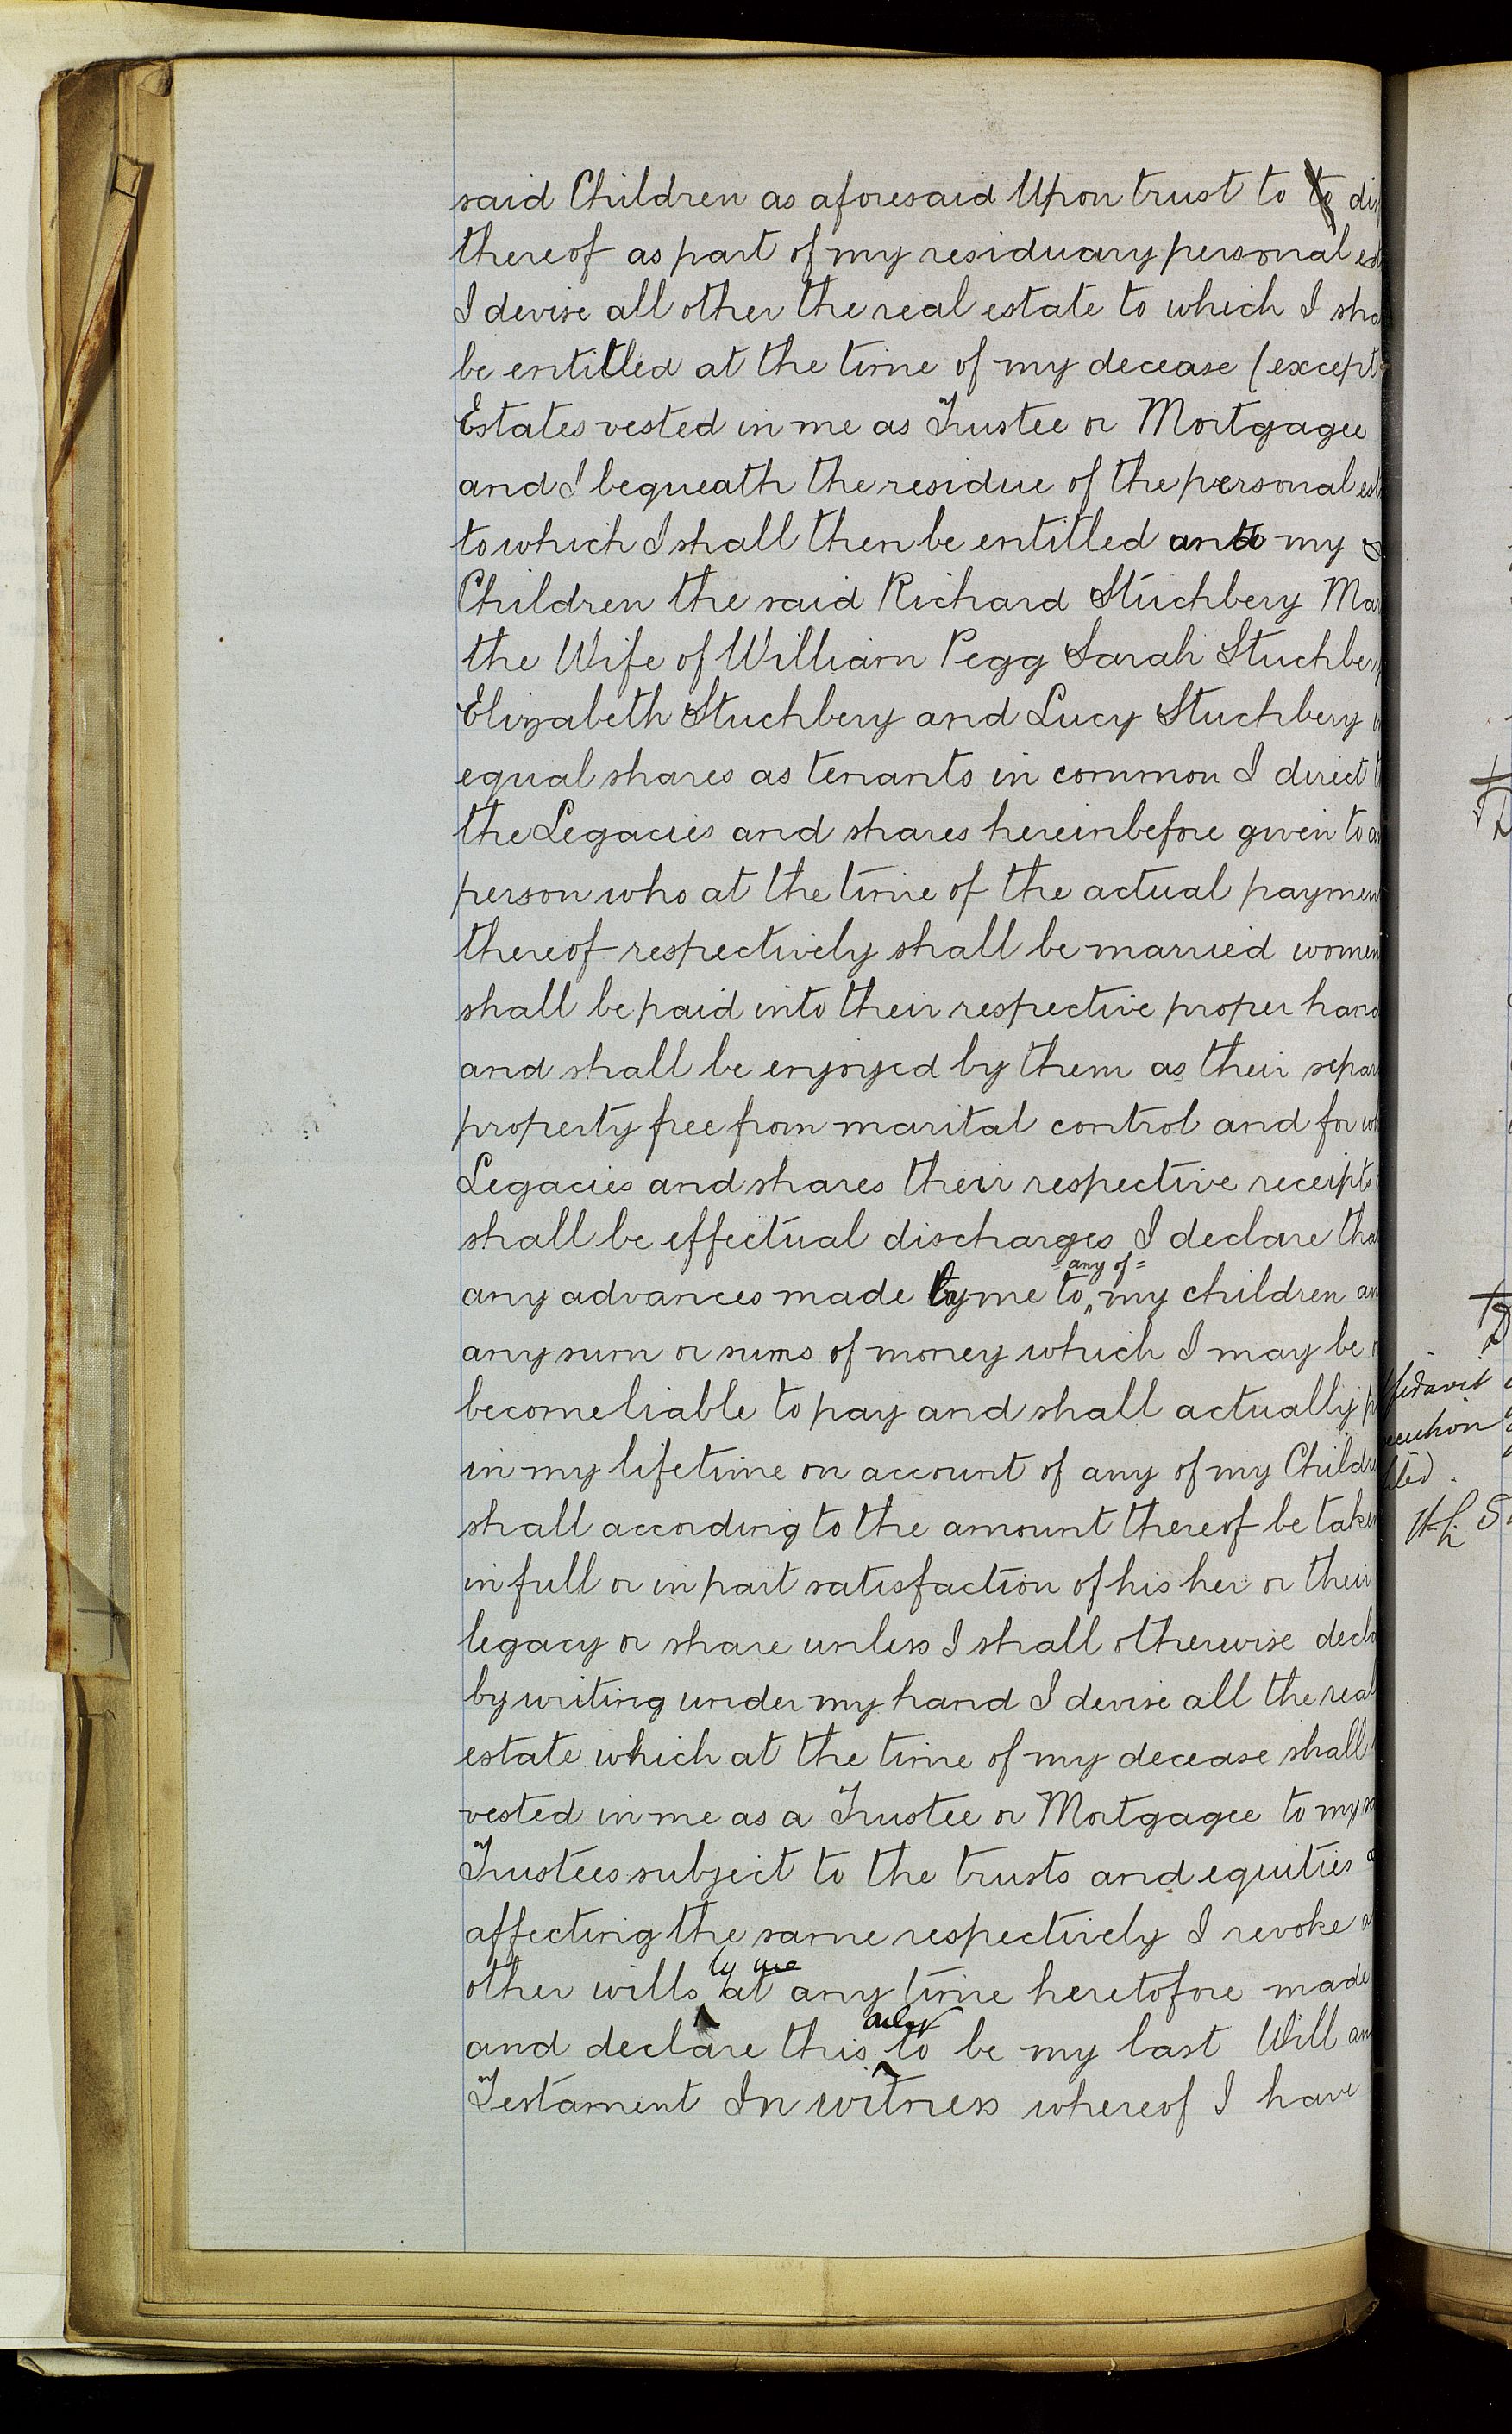 said Children as aforesaid Upon trust to to
thereof as part of my residuary personal
I devise all other the real estate to which I sha
be entitled at the time of my decease (except
Estates vested in me as Trustee or Mortgagee
and I bequeath the residue of the personal est
to which I shall then be entitled unto my
Children the said Richard Stuchbery Ma
the Wife of William Pegg Sarah Stuchbery
Elizabeth Stuchbery and Lucy Stuchbery
equal shares as tenants in common I direct
the Legacies and shares hereinbefore given to
person who at the time of the actual paymen
thereof respectively shall be married women
shall be paid into their respective proper hand
and shall be enjoyed by them as their separ
property free from marital control and for wh
Legacies and shares their respective receipts
shall be effectual discharges I declare tha
any advances made by me to any of my children an
any sum or sums of money which I may be
become liable to pay and shall actually
in my lifetime on account of any of my Childre
shall according to the amount thereof be taken
in full or in part satisfaction of his her or their
legacy or share unless I shall otherwise decla
by writing under my hand I devise all the real
estate which at the time of my decease shall
vested in me as a Trustee or Mortgagee to my
Trustees subject to the trusts and equities
affecting the same respectively I revoke
other wills by me at any time heretofore made
and declare this only to be my last Will an
Testament In witness whereof I have